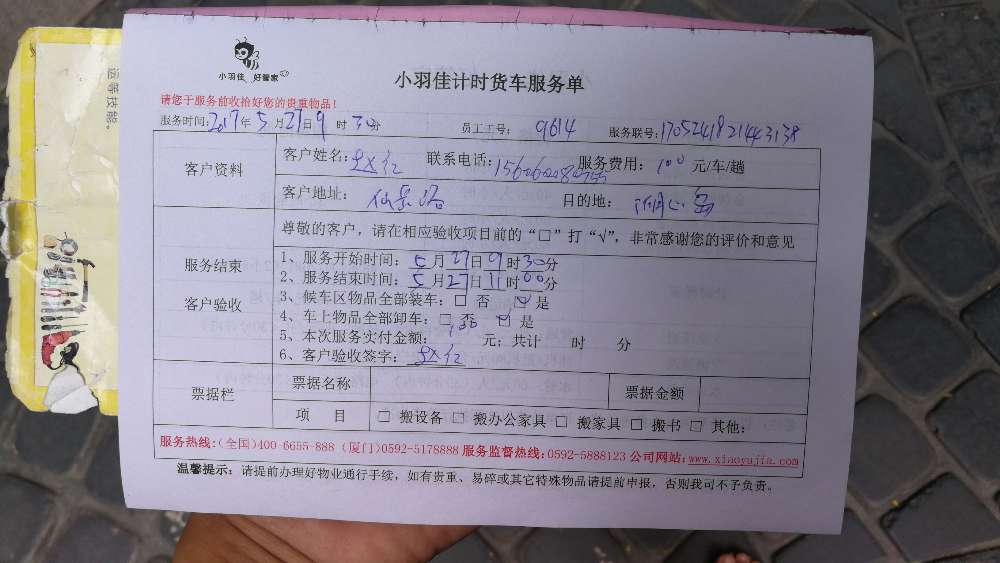 小羽佳 好管家
小羽佳计时货车服务单
请您于服务前收拾好您的贵重物品!
服务时间:2017年5月27日9时30分 员工工号: 9614 服务联号:1705241821443138
客户资料 客户姓名: 联系电话: 服务费用:100元/车/趟
客户地址: 目的地:
尊敬的客户,请在相应验收项目前的“□”打“√”,非常感谢您的评价和意见
服务结束
客户验收
1、服务开始时间:5月27日9时30分
2、服务结束时间:5月27日11时00分
3、候车区物品全部装车:□ 否 ☑ 是
4、车上物品全部卸车:□ 否 ☑ 是
5、本次服务实付金额:100元;共计 时 分
6、客户验收签字:
票据栏 票据名称 票据金额
项 目 □ 搬设备 □ 搬办公家具 □ 搬家具 □ 搬书 □ 其他:
服务热线:(全国)400-6655-888 (厦门)0592-5178888 服务监督热线:0592-5888123 公司网站:www.xiaoyujia.com
温馨提示:请提前办理好物业通行手续,如有贵重、易碎或其它特殊物品请提前申报,否则我司不予负责。
等技能。